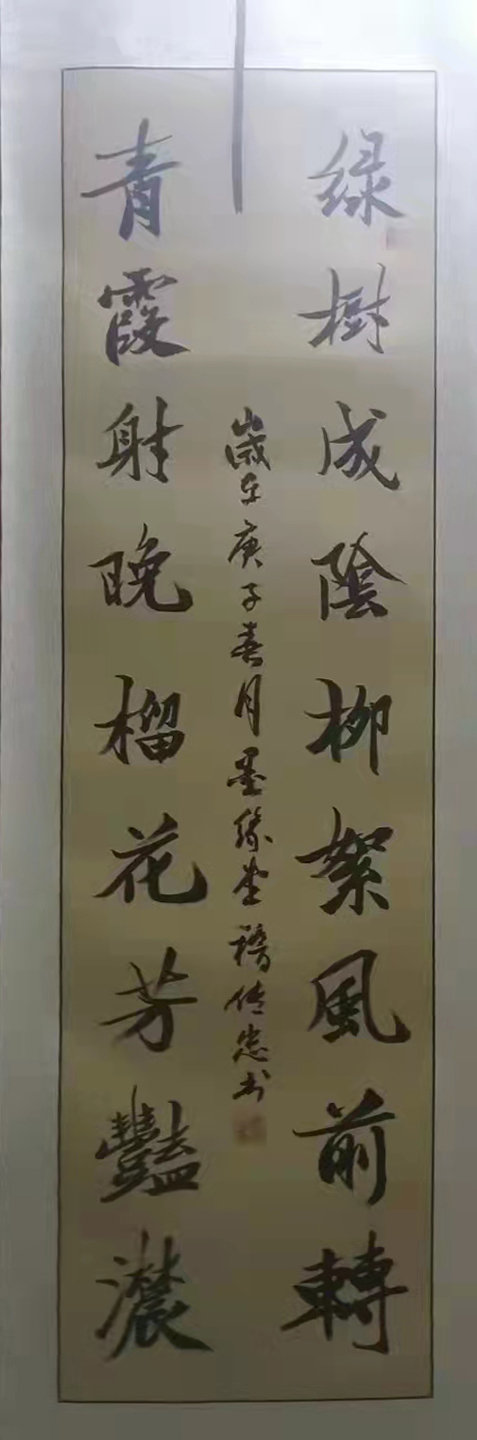 绿樹成陰柳絮風前轉
青霞射晚榴花芳豔濃
歲在庚子春月墨緣堂傳忠书